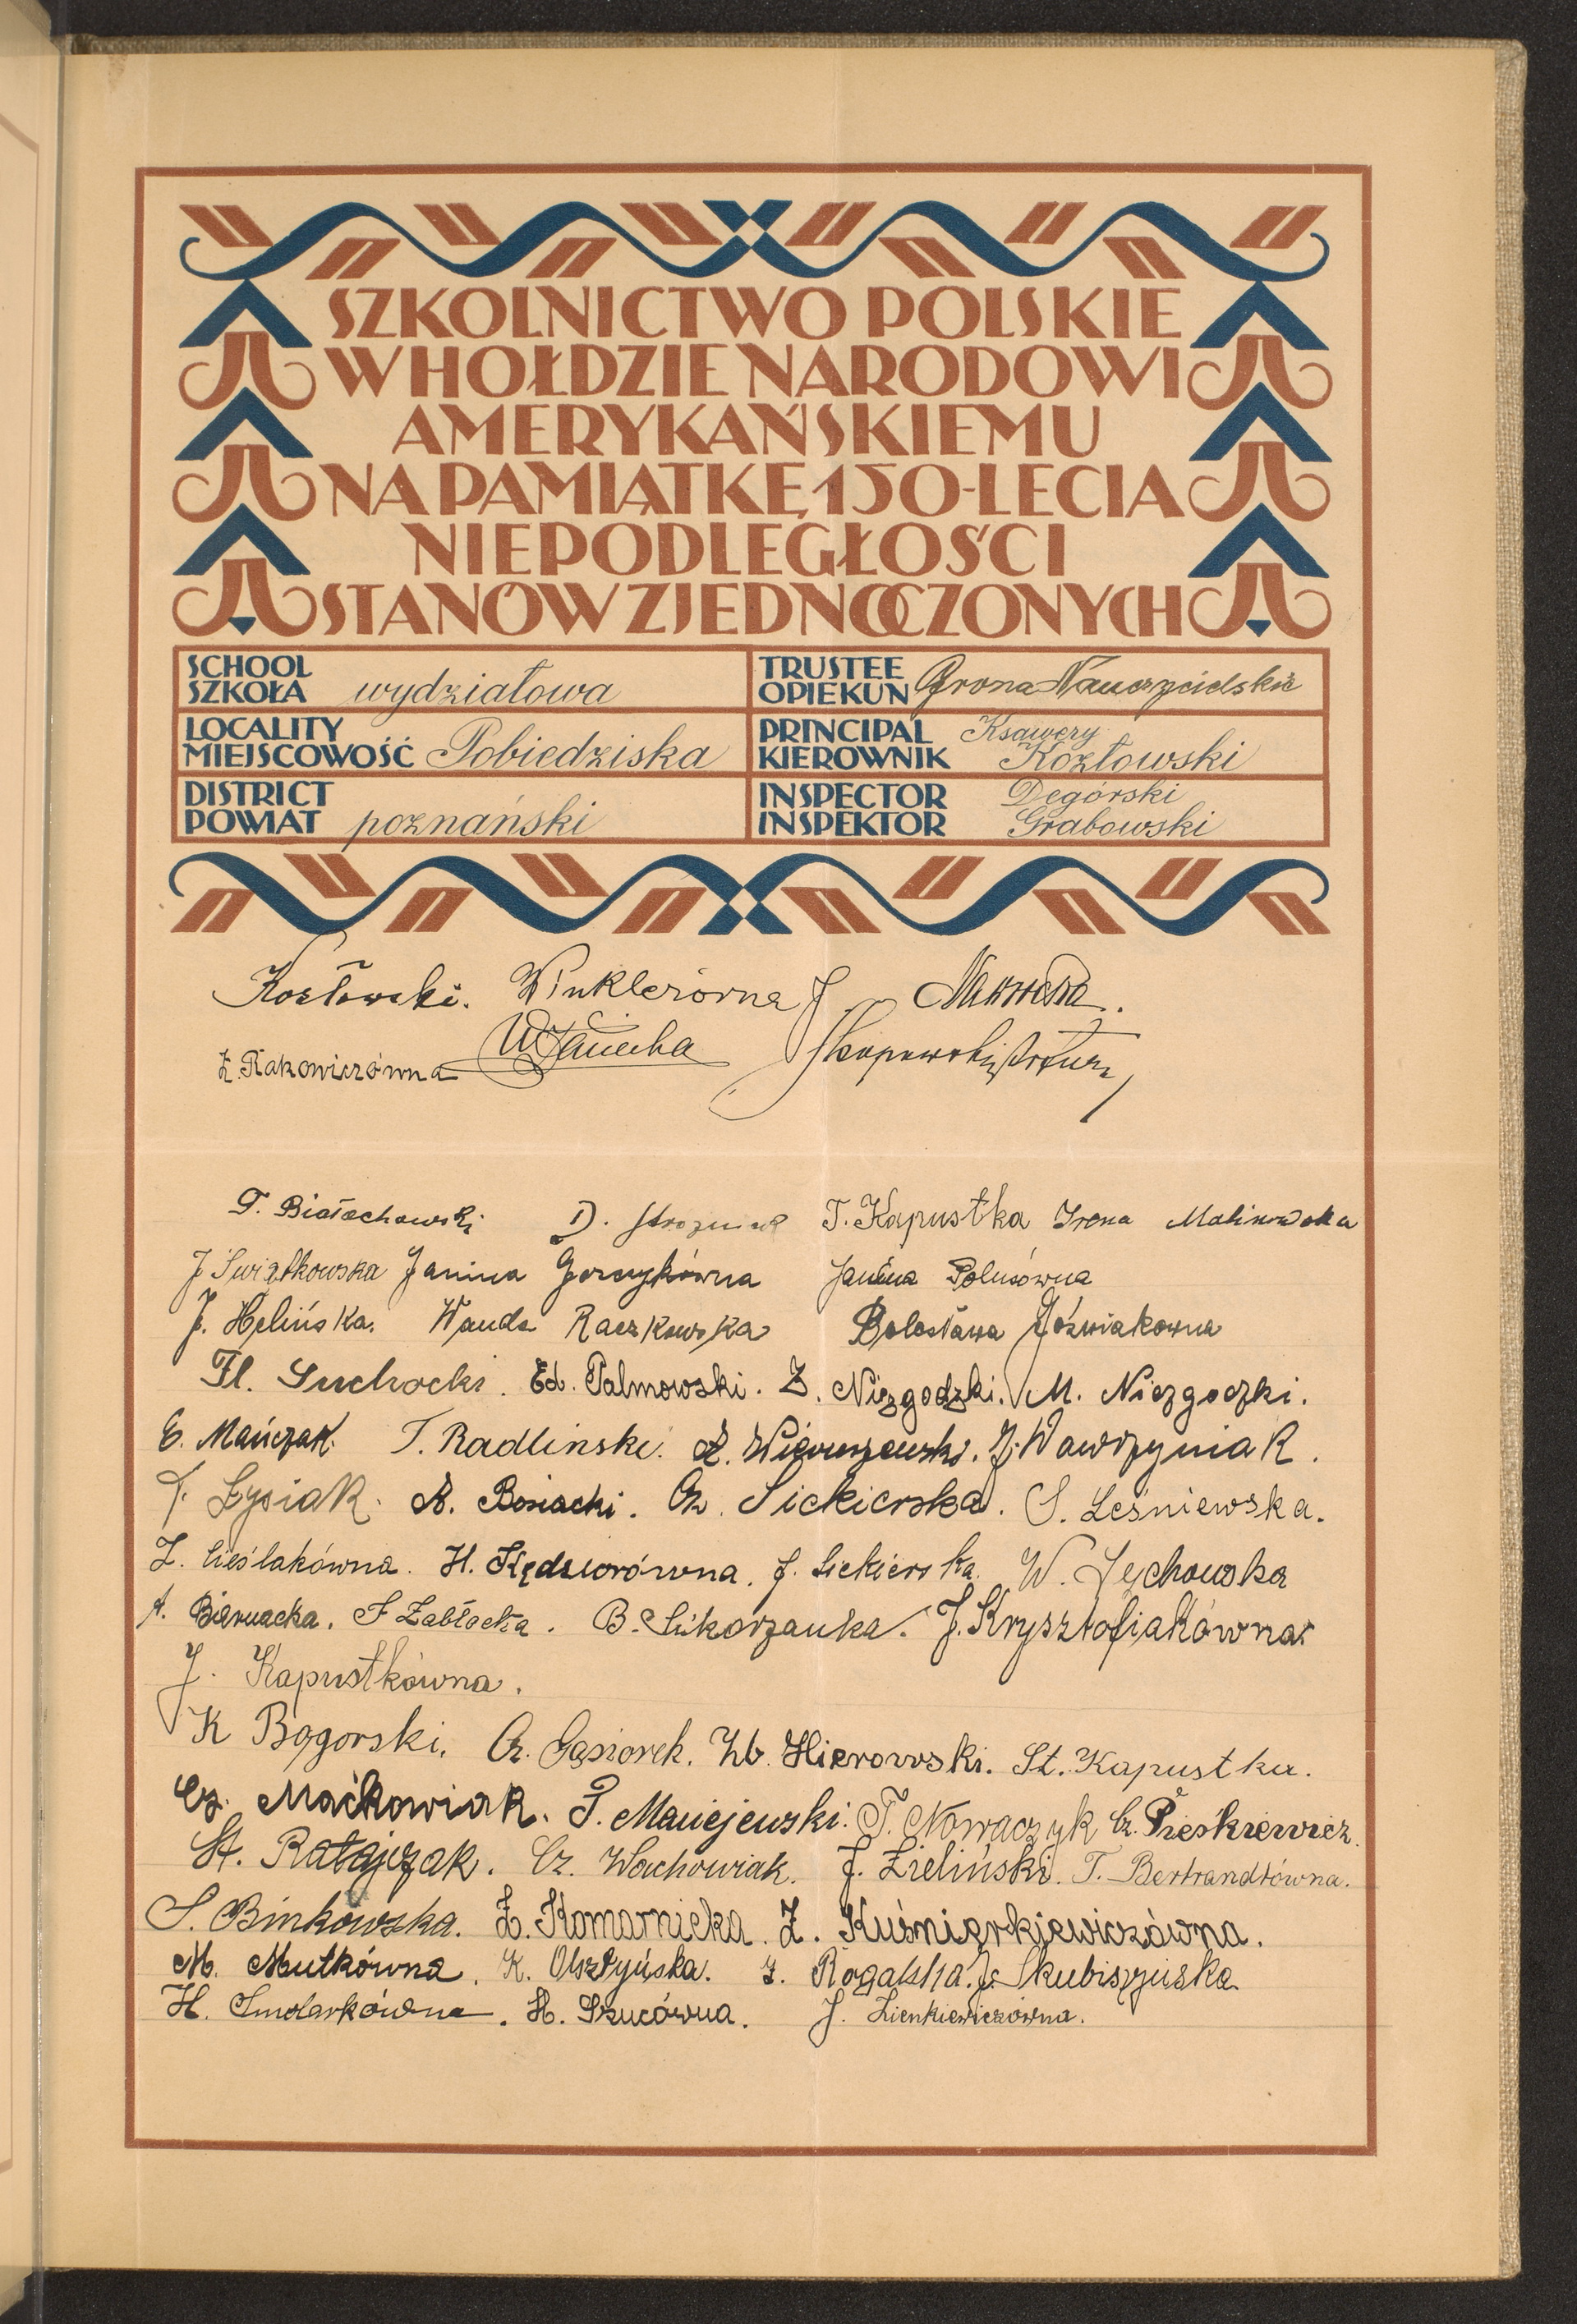 SZKOLNICTWO POLSKIE
W HOŁDZIE NARODOWI
AMERYKAŃSKIEMU
NA PAMIĄTKĘ 150-LECIA
NIEPODLEGŁOŚCI
STANÓW ZJEDNOCZONYCH
SCHOOL
SZKOŁA wydziałowa
TRUSTEE
OPIEKUN Grona Nauczycielskie
LOCALITY
MIEJSCOWOŚĆ Pobiedziska
PRINCIPAL Ksawery
KIEROWNIK Kozłowski
DISTRICT
POWIAT poznański
INSPECTOR Degórski
INSPEKTOR Grabowski
Kozłowski. Winklerówna J Nawrotka.
Z. Rakowiczówna
T. Białachowski D. T. Kapustka Irena Malinowska
J Świątkowska Janina Gorczykówna Janina Polusówna
J. Helińska. Wanda Raczkowska Bolesława Jóźwiakowna
Fl. Suchocki. Ed. Palmowski. Z. Niezgodzki. M. Niezgodzki.
E. Mańczak. T. Radlinski. Z. Wieruszewski. J. Wawrzyniak.
F. Łysiak. A. Bosiacki. Cz. Siekierska. S. Leśniewska.
Z. Cieślakówna. H. Kędziorówna. J. Siekierska. W. Żychowska
A. Biernacka. F Zabłocka. B. Sikorzanka. J. Krysztofiakówna.
J. Kapustkówna.
K Bogorski. Cz. Gąsiorek. Zb. Hierowski. St. Kapustka.
Cz. Maćkowiak. P. Maciejewski. T. Nowaczyk Cz. Pieśkiewicz.
St. Ratajczak. Cz. Wachowiak. J. Zieliński. T. Bertrandtówna.
S. Binkowska. Z. Komarnicka. Z. Kuśnierkiewiczówna.
M. Mutkówna. K. Olsztyńska. Z. Rogalska. J. Skubiszyńska
H. Smolarkówna. H. Szucówna. J. Zienkiewiczówna.